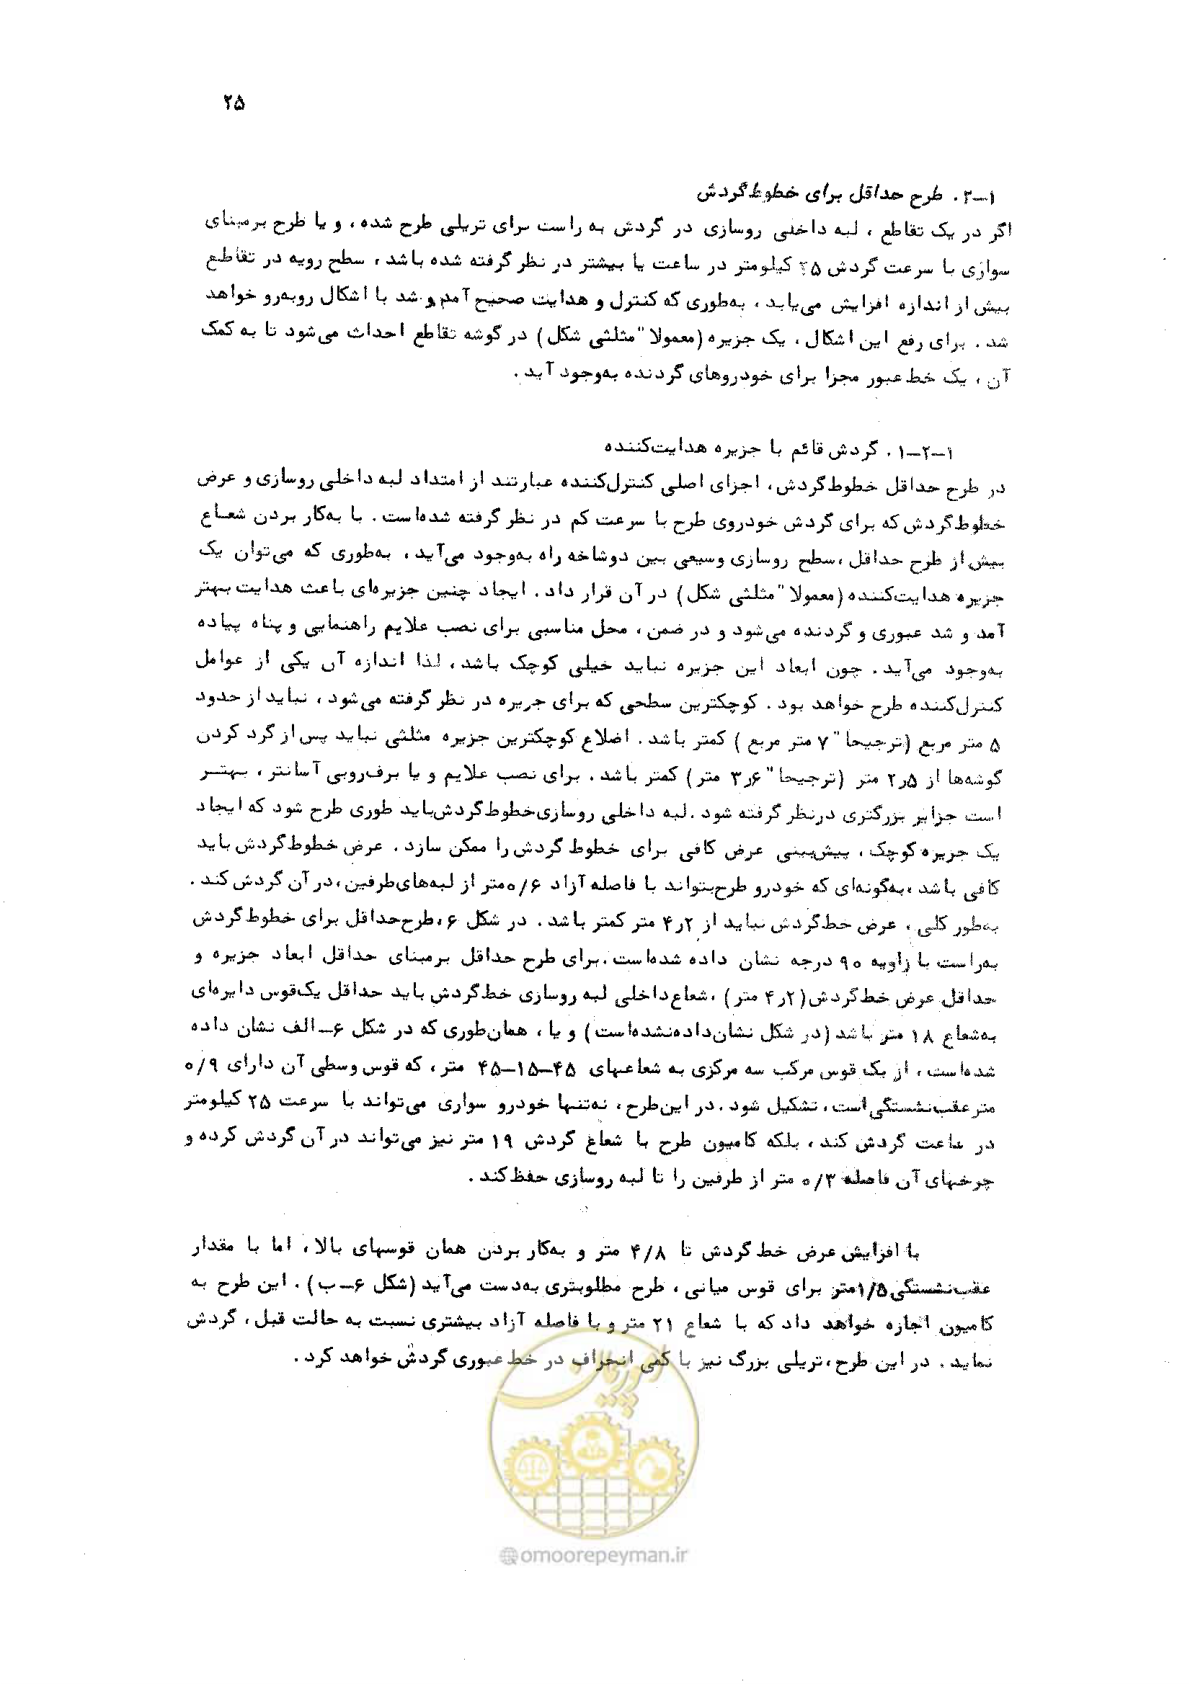 ۲۵
۱–۲. طرح حداقل برای خطوط‌گردش
اگر در یک تقاطع ، لبه داخلی روسازی در گردش به راست برای تریلی طرح شده ، و یا طرح برمبنای
سواری با سرعت گردش ۲۵ کیلومتر در ساعت یا بیشتر در نظر گرفته شده باشد ، سطح رویه در تقاطع
بیش از اندازه افزایش می‌یابد ، به‌طوری که کنترل و هدایت صحیح آمد و شد با اشکال روبه‌رو خواهد
شد . برای رفع این اشکال ، یک جزیره (معمولا" مثلثی شکل) در گوشه تقاطع احداث می‌شود تا به کمک
آن ، یک خط عبور مجزا برای خودروهای گردنده به‌وجود آید .
۱–۲–۱ . گردش قائم با جزیره هدایت‌کننده
در طرح حداقل خطوط‌گردش ، اجزای اصلی کنترل‌کننده عبارتند از امتداد لبه داخلی روسازی و عرض
خطوط‌گردش که برای گردش خودروی طرح با سرعت کم در نظر گرفته شده‌است . با به‌کار بردن شعاع
بیش از طرح حداقل ، سطح روسازی وسیعی بین دوشاخه راه به‌وجود می‌آید ، به‌طوری که می‌توان یک
جزیره هدایت‌کننده (معمولا" مثلثی شکل) در آن قرار داد . ایجاد چنین جزیره‌ای باعث هدایت بهتر
آمد و شد عبوری و گردنده می‌شود و در ضمن ، محل مناسبی برای نصب علایم راهنمایی و پناه پیاده
به‌وجود می‌آید . چون ابعاد این جزیره نباید خیلی کوچک باشد ، لذا اندازه آن یکی از عوامل
کنترل‌کننده طرح خواهد بود . کوچکترین سطحی که برای جریره در نظر گرفته می‌شود ، نباید از حدود
۵ متر مربع (ترجیحا" ۷ متر مربع ) کمتر باشد . اضلاع کوچکترین جزیره مثلثی نباید پس از گرد کردن
گوشه‌ها از ۲٫۵ متر (ترجیحا" ۳٫۶ متر) کمتر باشد . برای نصب علایم و یا برف‌روبی آسانتر ، بهتر
است جزایر بزرگتری درنظر گرفته شود . لبه داخلی روسازی خطوط‌گردش باید طوری طرح شود که ایجاد
یک جزیره کوچک ، پیش‌بینی عرض کافی برای خطوط گردش را ممکن سازد . عرض خطوط‌گردش باید
کافی باشد ، به‌گونه‌ای که خودرو طرح بتواند با فاصله آزاد ۰/۶متر از لبه‌های طرفین ، در آن گردش کند .
به‌طور کلی ، عرض خط‌گردش نباید از ۴٫۲ متر کمتر باشد . در شکل ۶ ، طرح حداقل برای خطوط‌گردش
به‌راست با زاویه ۹۰ درجه نشان داده شده‌است . برای طرح حداقل برمبنای حداقل ابعاد جزیره و
حداقل عرض خط‌گردش (۴٫۲ متر) ، شعاع داخلی لبه روسازی خط‌گردش باید حداقل یک‌قوس دایره‌ای
به‌شعاع ۱۸ متر باشد (در شکل نشان‌داده‌نشده‌است) و یا ، همان‌طوری که در شکل ۶–الف نشان داده
شده‌است ، از یک قوس مرکب سه مرکزی به شعاعهای ۴۵–۱۵–۴۵ متر ، که قوس وسطی آن دارای ۰/۹
متر عقب‌نشستگی‌است ، تشکیل شود . در این‌طرح ، نه‌تنها خودرو سواری می‌تواند با سرعت ۲۵ کیلومتر
در ساعت گردش کند ، بلکه کامیون طرح با شعاع گردش ۱۹ متر نیز می‌تواند در آن گردش کرده و
چرخهای آن فاصله ۰/۳ متر از طرفین را تا لبه روسازی حفظ‌کند .
با افزایش عرض خط‌گردش تا ۴/۸ متر و به‌کار بردن همان قوسهای بالا ، اما با مقدار
عقب‌نشستگی ۱/۵متر برای قوس میانی ، طرح مطلوبتری به‌دست می‌آید (شکل ۶–ب) . این طرح به
کامیون اجازه خواهد داد که با شعاع ۲۱ متر و با فاصله آزاد بیشتری نسبت به حالت قبل ، گردش
نماید . در این طرح ، تریلی بزرگ نیز با کمی انحراف در خط عبوری گردش خواهد کرد .
امور پیمان
@omoorepeyman.ir